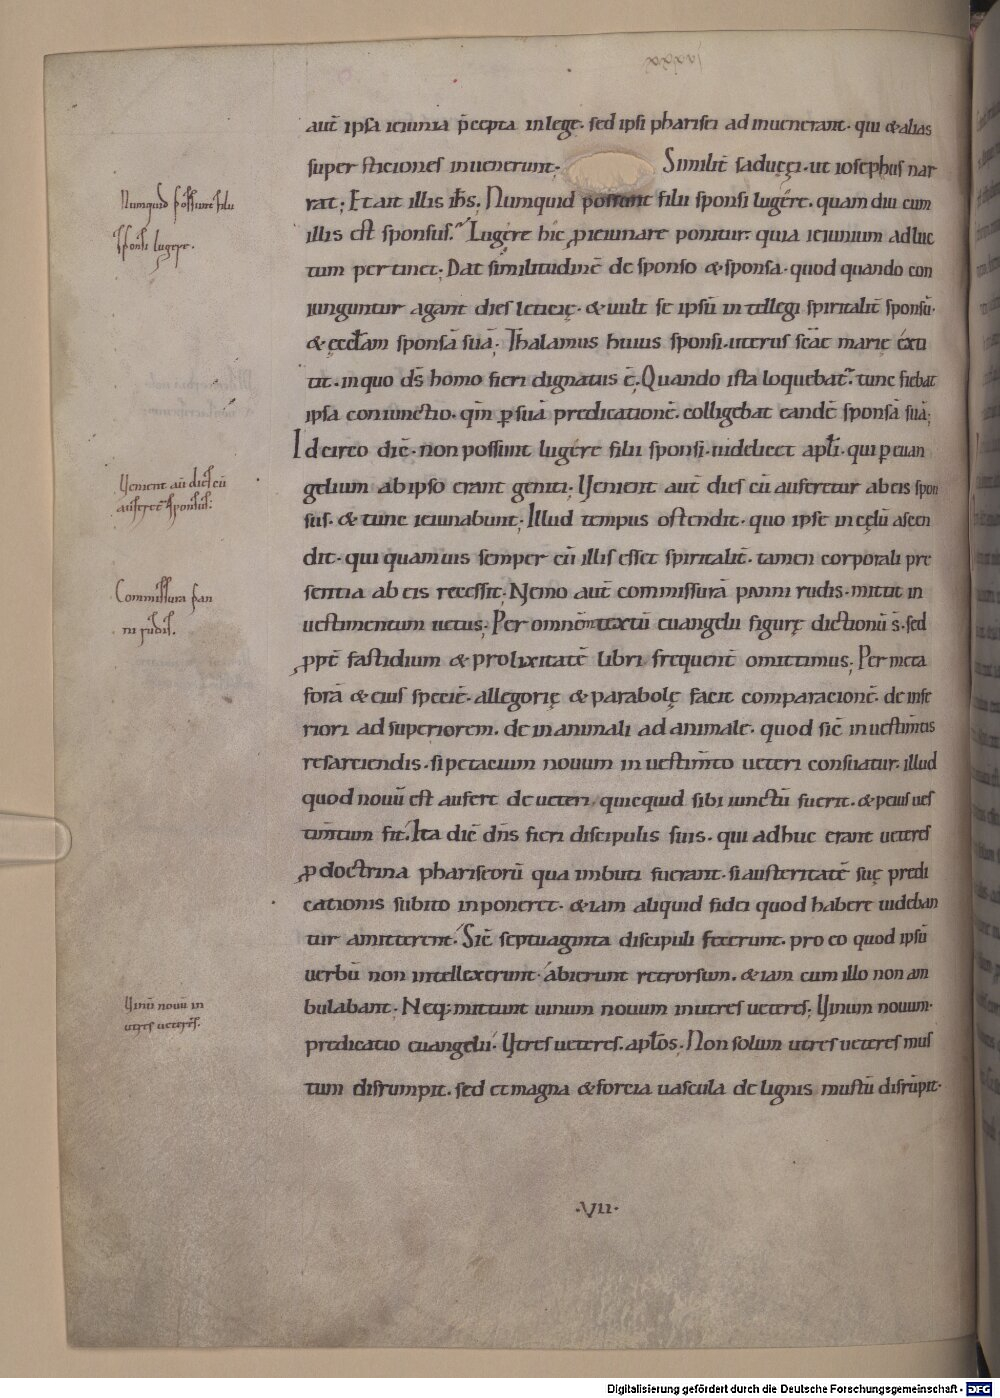 aut̄ ipsa ieiunia p̄cepta in lege. sed ipsi pharisei ad inuenerant. qui & alias
super sticiones inuenerunt; Similit̄ saducęi. ut iosephus nar
rat; Et ait illis ih̄s. Numquid possunt filii sponsi lugere. quam diu cum
illis est sponsus. Lugere hic p ieiunare ponitur. quia ieiunium ad luc
tum pertinet; Dat similitudinē de sponso & sponsa. quod quando con
iunguntur agant dies leticię. & uult se ipsū intellegi spiritalit̄ sponsū.
& ęccl̄am sponsā suā; Thalamus huius sponsi. uterus scāe marię extı
tit. in quo dš homo fieri dignatus ē. Quando ista loquebat̄. tunc fiebat
ipsa coniunctio. qm̄ p suā predicationē. colligebat eandē sponsā suā;
Idcirco dic̄. non possunt lugere filii sponsi. uidelicet apl̄i. qui p euan
gelium ab ipso erant geniti; Uenient aut̄ dies cū auferetur ab eis spon
sus. & tunc ieiunabunt; Illud tempus ostendit. quo ipse in cęlū ascen
dit. qui quamuis semper cū illis esset spiritalit̄. tamen corporali pre
sentia ab eis recessit; Nemo aut̄ commissurā panni rudis. mittit in
uestimentum uetus; Per omnem textū euangelii figurę dictionū s̄. sed
ppt̄ fastidium & prolixitatē libri. frequent̄ omittimus; Per meta
forā & eius speciē. allegorię & parabolę facit comparacionē. de infe
riori ad superiorem. de inanimali ad animale. quod sic̄ in uestim̄tis
resarciendis. si petacium nouum in uestim̄to ueteri consuatur. illud
quod nouū est aufert de ueteri quicquid sibi iunctū fuerit. & peius ues
tim̄tum fit. Ita dic̄ dn̄s fieri discipulis suis. qui adhuc erant ueteres
p doctrina phariseorū qua imbuti fuerant. si austeritatē suę predi
cationis subito inponeret. & iam aliquid fidei quod habere uideban
tur amitterent. Sic̄ septuaginta discipuli fecerunt. pro eo quod ipsū
uerbū non intellexerunt. abierunt retrorsum. & iam cum illo non am
bulabant. Neq; mittunt uinum nouum in utres ueteres; Uinum nouum.
predicatio euangelii. Utres ueteres. apl̄os. Non solum utres ueteres mus
tum disrumpit. sed et magna & forcia uascula de lignis mustū disrūpit.
.VII.
Numquid possunt filii
sponsi lugere.
Uenient aū dies cū
auferet̄ sponsus.
Commissura pan
ni rudis.
Uinū nouū in
utres ueteres.
Digitalisierung gefördert durch die Deutsche Forschungsgemeinschaft - DFG